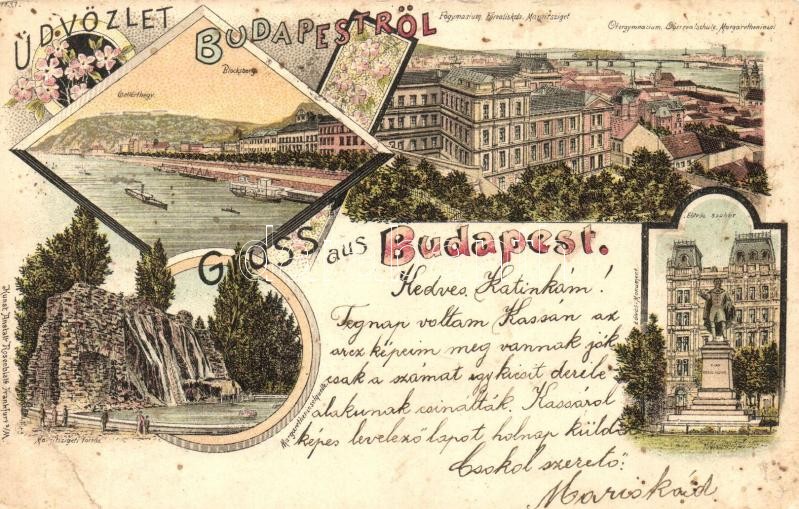 1137.
ÜDVÖZLET
BUDAPESTRŐL
Blocksberg
Gellérthegy
Főgymnasium, Főrealiskola, Margitsziget
Obergymnasium, Oberrealschule, Margaretheninsel
GRUSS aus Budapest.
Eötvös szobor
Eötvös-Monument.
Margitszigeti forrás
Margaretheninselquelle
Kunst Anstalt Rosenblatt, Frankfurt a/M.
Kedves Katinkám!
Tegnap voltam Kassán az
arcz képeim meg vannak jók
csak a számat egy kicsit derele
alakunak csinálták. Kassárol
képes levelező lapot holnap küldö
Csokol szerető:
Mariskád.